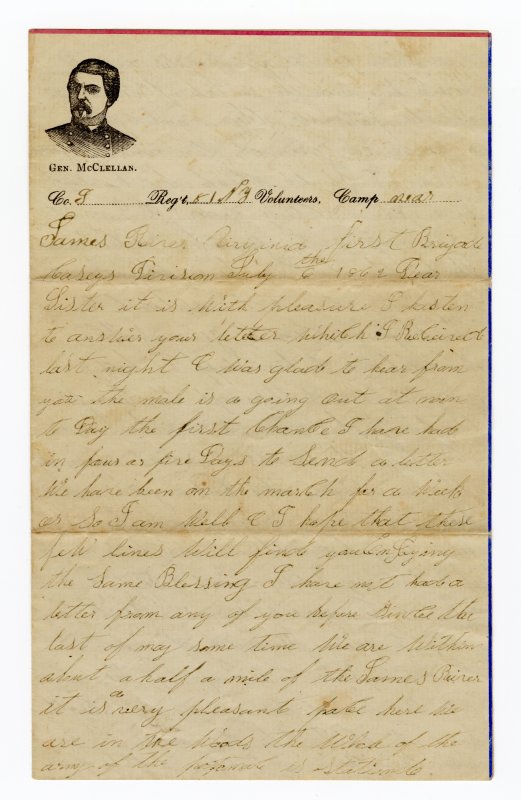 GEN. MCCLELLAN.
Co. I Reg't, 81 N Y Volunteers, Camp near
James River Virginia first Brigade
Caseys Division July the 6 1862 Dear
Sister it is with pleasure I hasten
to answer your letter which I Received
last night I was glad to hear from
you the male is a going out at noon
to Day the first Chance I have had
in four or five Days to Send a letter
We have been on the march for a week
or So I am well & I hope that these
few lines will finde you EnJoying
the Same Blessing I have not had a
letter from any of you before Since the
last of may some time We are within
about a half a mile of the James River
it is a very pleasant place here we
are in the Woods the whole of the
army of the potomac is stationed.